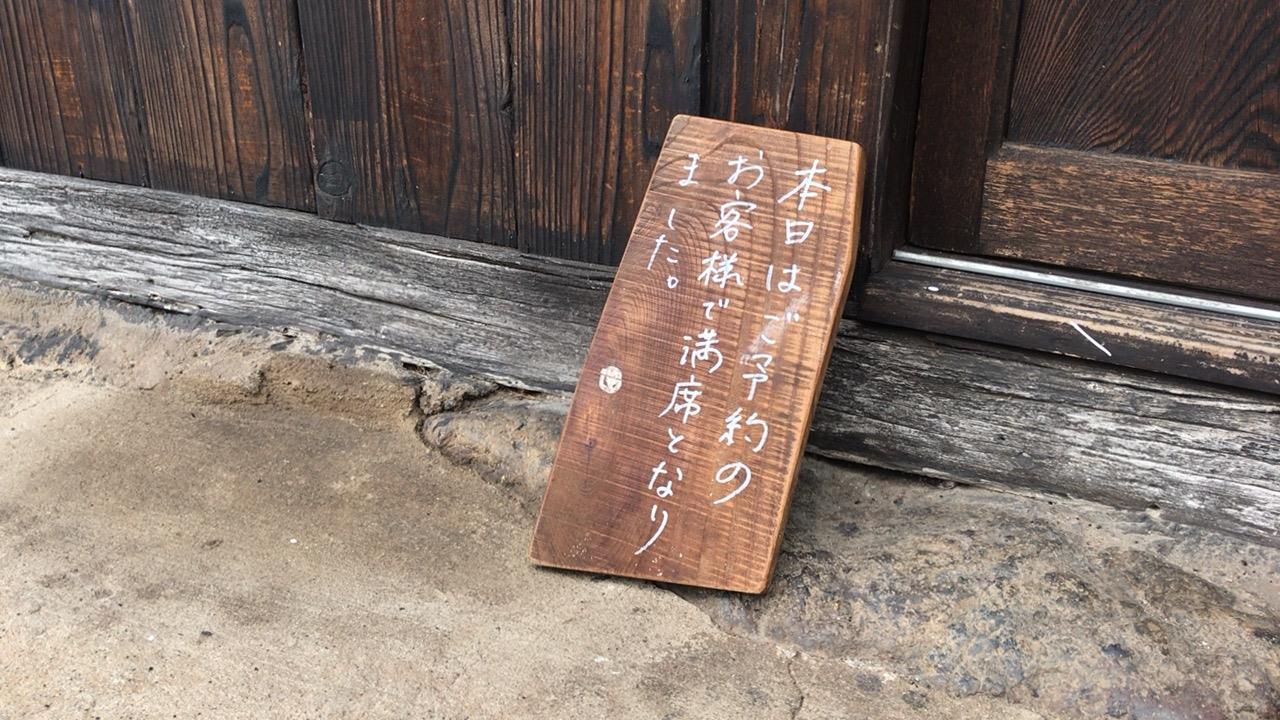 本日はご予約の
お客様で満席となり
ました。